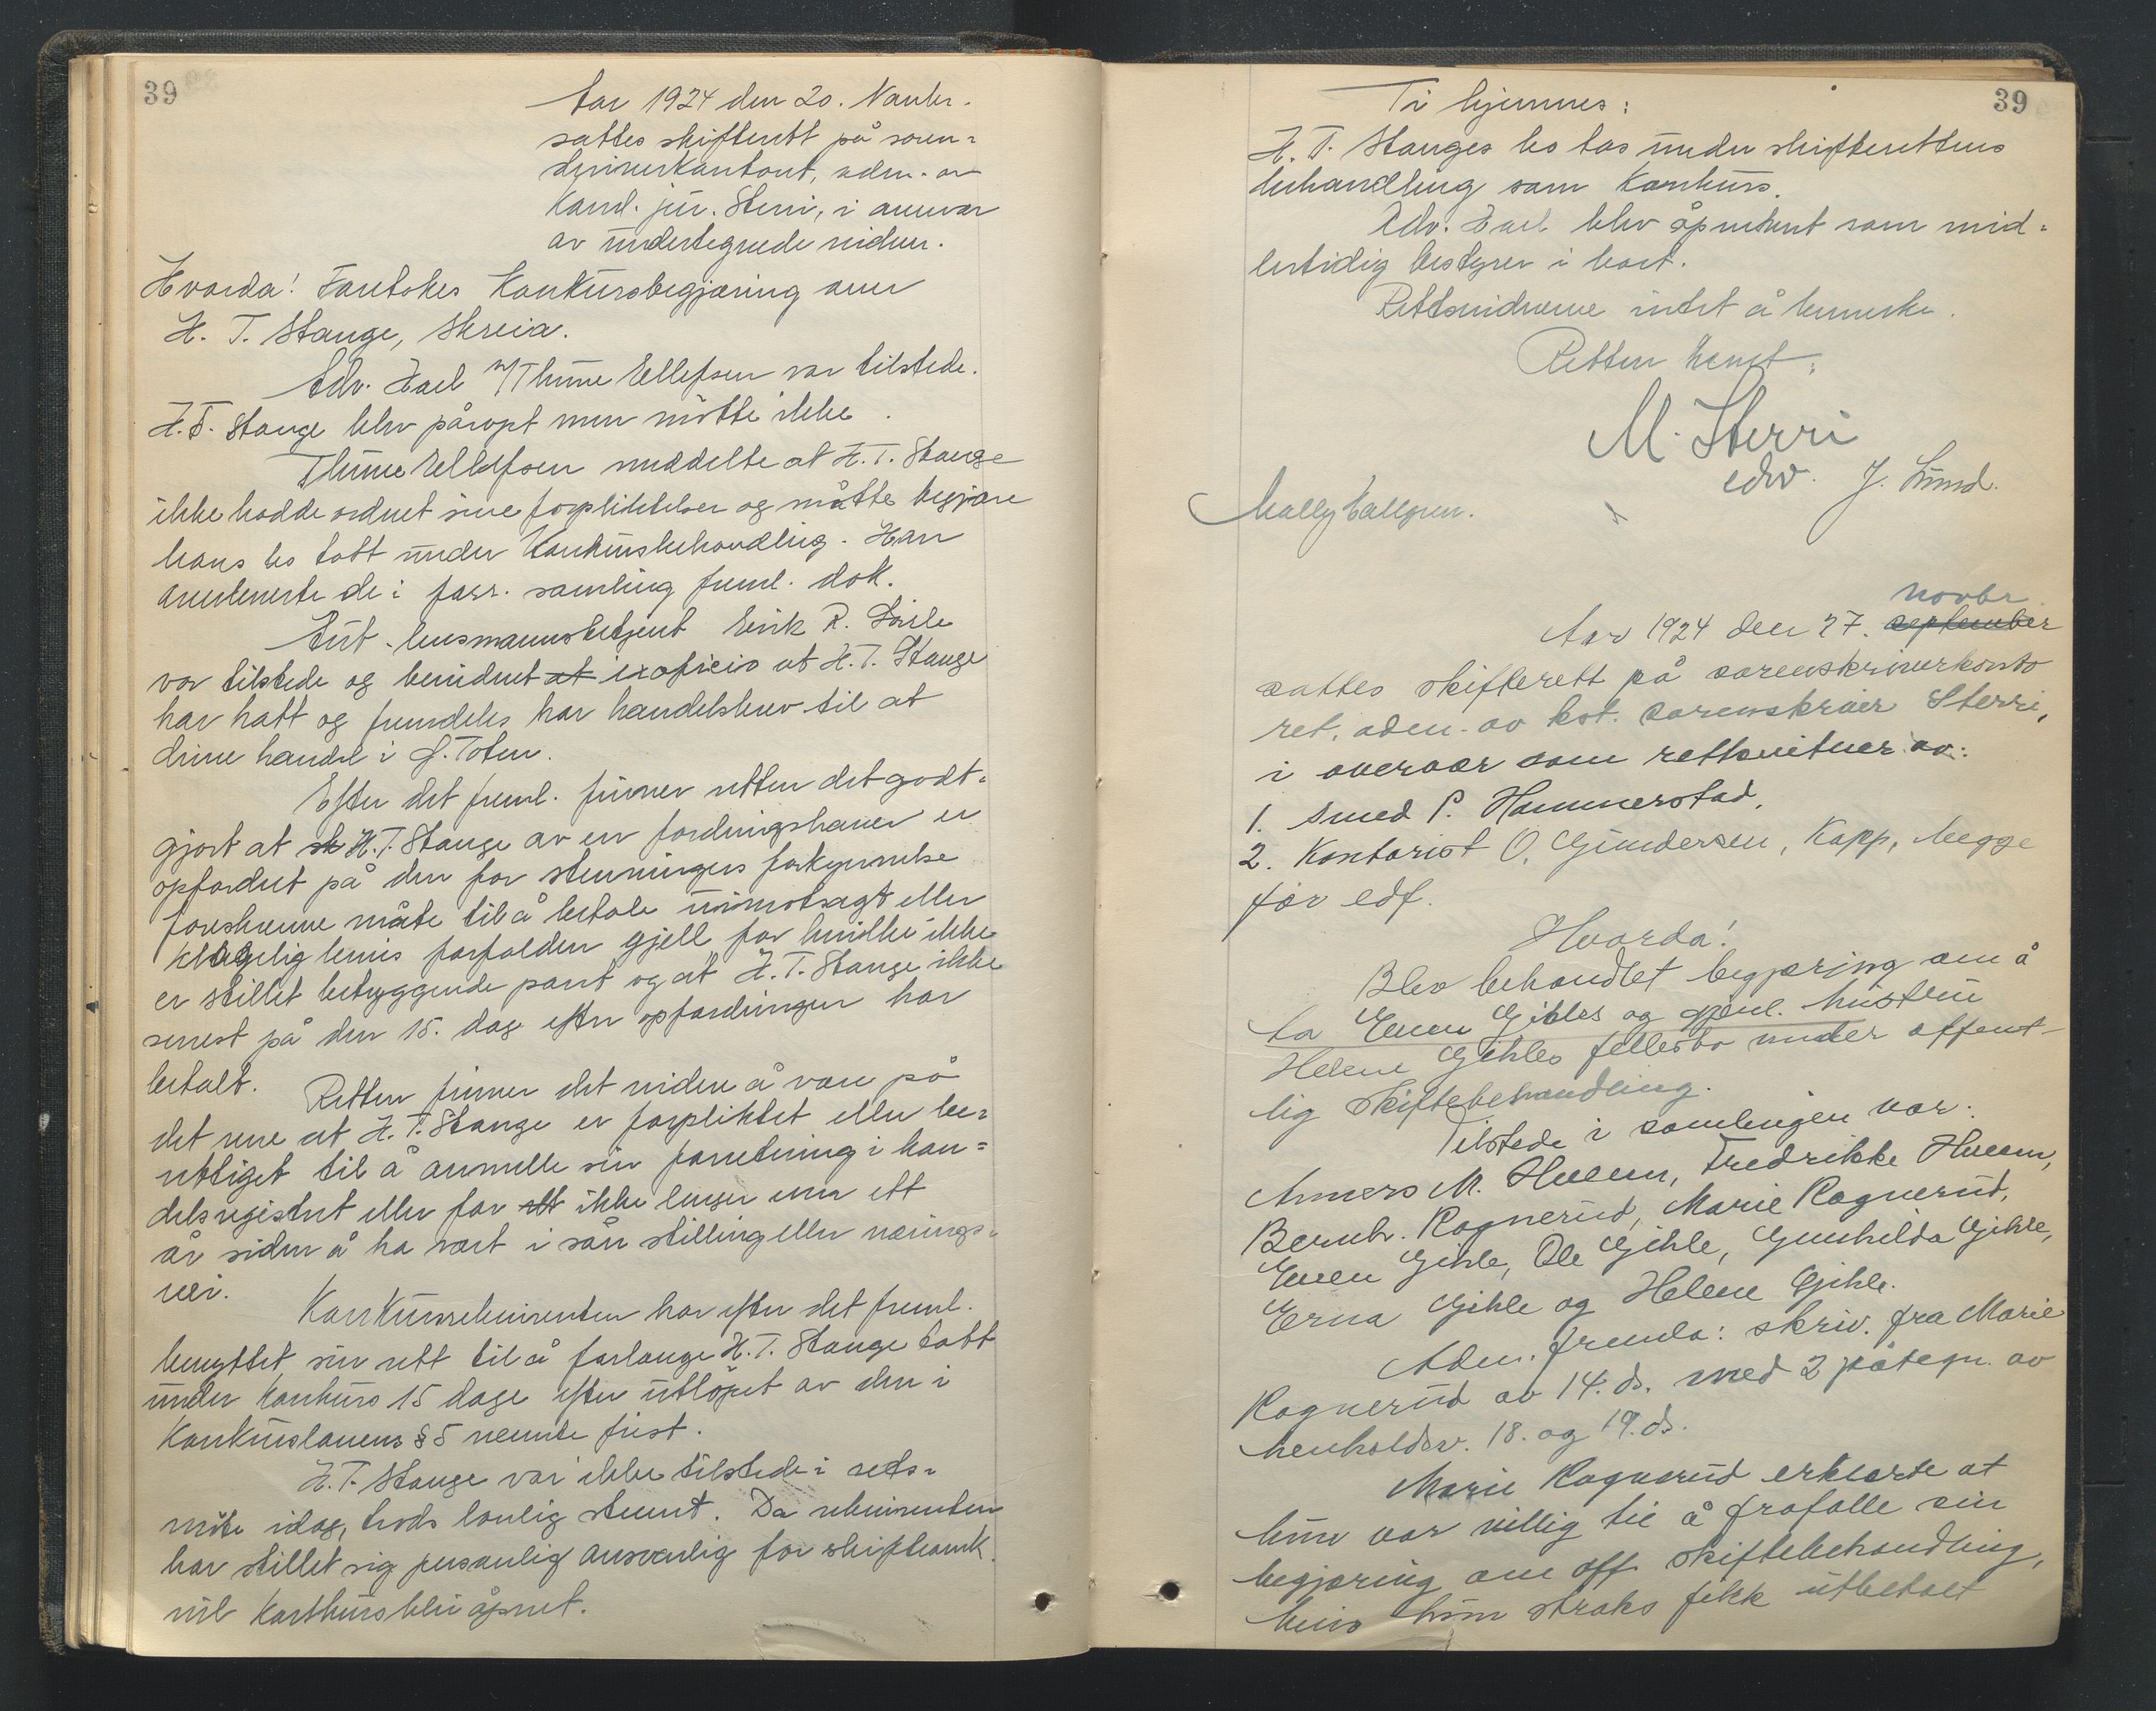 39
Aar 1924 den 20. Novbr.
sattes skifterett på soren-
skriverkontoret, adm. av
Kand. jur. Sterri, i overvær
av undertegnede vidner.
Hvorda! Foretokes Konkursbegjæring over
H. T. Stange, Skreia.
Adv. Hael v/Thune Ellefsen var tilstede.
H. T. Stange blev påropt men møtte ikke.
Thune Ellefsen meddelte at H. T. Stange
ikke hadde ordnet sine forpliktelser og måtte begjære
hans bo tatt under Konkursbehandling. Han
påberopte de i forr. samling freml. dok.
Aut. lensmannsbetjent Erik R.
var tilstede og bevidnet at exoficio at H. T. Stange
har hatt og fremdeles har handelsbrev til at
drive handel i Ø. Toten.
Efter det freml. finner retten det godt-
gjort at sk H. T. Stange av en fordringshaver er
opfordret på den for stevningers forkynnelse
foreskrevne måte til å betale uimotsagt eller
klagelig bevis forfalden gjeld for hvilke ikke
er stillet betryggende pant og at H. T. Stange ikke
senest på den 15. dag efter opfordringen har
betalt.
Retten finner det videre å være på
det rene at H. T. Stange er forpliktet eller be-
rettiget til å anmelle sin forretning i han-
delsregistret eller for ett ikke lenger enn ett
år siden å ha vært i sån stilling eller nærings-
vei.
Konkursrekvirenten har efter det freml.
benyttet sin rett til å forlange H. T. Stange tatt
under Konkurs 15 dage efter utløpet av den i
Konkurslovens § 5 nevnte frist.
H. T. Stange var ikke tilstede i rets-
møte idag, trods lovlig stevnt. Da rekvirenten
har stillet sig personlig ansvarlig for skifteomk.
vil Konkurs bli åpnet.
39
Ti kjennes:
H. T. Stanges bo tas under skifterettens
behandling som Konkurs.
Adv. Hael blev opnevnt som mid-
lertidig bestyrer i boet.
Rettsvidnerne intet å bemerke.
Retten hevet.
M. Sterri
edv. J. Lund.
Mally Hallgren.
novbr.
Aar 1924 den 27. september
sattes skifterett på sorenskriverkonto
ret, adm. av kst. sorenskriver Sterri,
i overvær som rettsvitner av:
1. Smed P. Hammerstad,
2. Kontorist O. Gundersen, Kapp, begge
før edf.
Hvorda!
Blev behandlet begjæring om å
ta Even Gihles og gjenl. hustru
Helene Gihles fellesbo under offent-
lig skiftebehandling.
Tilstede i samlingen var:
Anners M. Hveem, Fredrikke Hveem,
Bernh. Rognerud, Marie Rognerud,
Even Gihle, Ole Gihle, Gunhilda Gihle,
Erna Gihle og Helene Gjhle.
Adm. fremla: skriv. fra Marie
Rognerud av 14. ds. med 2 påtegn. av
henholdsv. 18. og 19. ds.
Marie Rognerud erklærte at
hun var villig til å frafalle sin
begjæring om off. skiftebehandling,
hvis hun straks fikk utbetalt